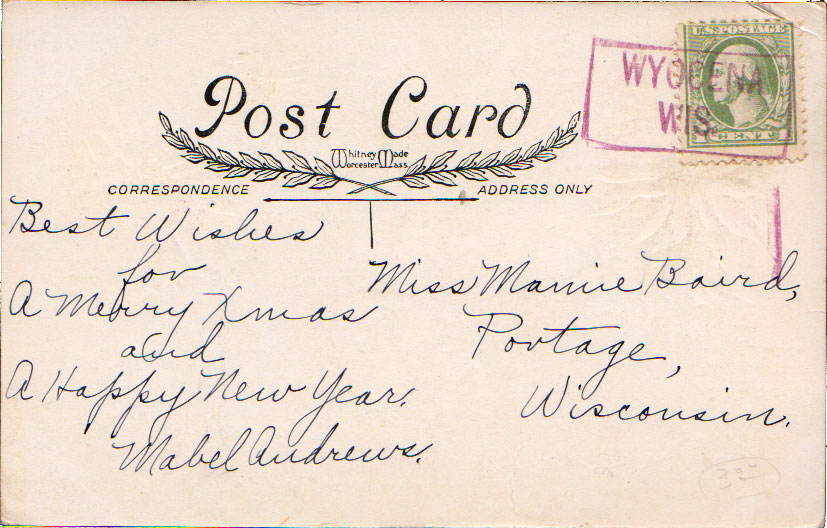 Post Card
Whitney Made
Worcester Mass.
CORRESPONDENCE
ADDRESS ONLY
U.S. POSTAGE
1 CENT 1
WYOCENA
WIS.
Best Wishes
for
A Merry Xmas
and
A Happy New Year.
Mabel Andrews.
Miss Mamie Baird,
Portage,
Wisconsin.